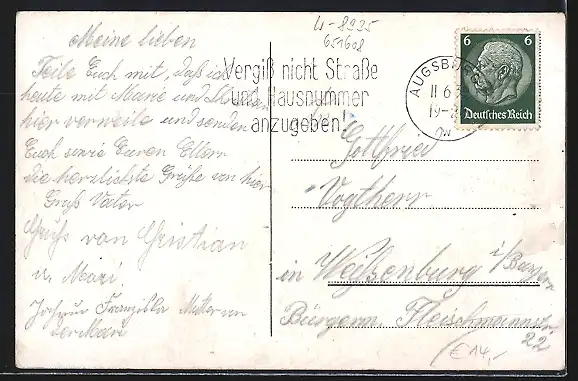 4-8925
651608
Meine lieben
Teile Euch mit, daß ich
heute mit Marie und
hier verweile und senden
Euch sowie Euren Eltern
die herzlichste Grüße von hier
Gruß Vater
Gruß von Christian
u. Mari.
Franziska Mutter von
der Mari
Vergiß nicht Straße
und Hausnummer
anzugeben!
AUGSBURG
11.6.3
19-2
6 6
Deutsches Reich
Gottfried
Vogtherr
in Weißenburg i/Bayern
Bürgerm. Fleischmannstr.
22
€ 14,-